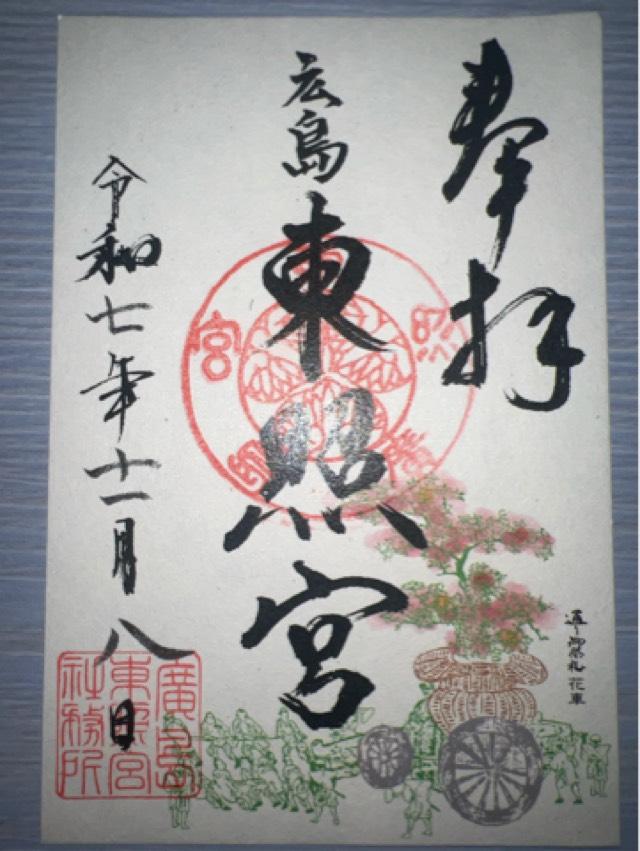 奉拝
広島東照宮
令和七年十一月八日
通り御祭礼花車
廣島
東照宮
社務所